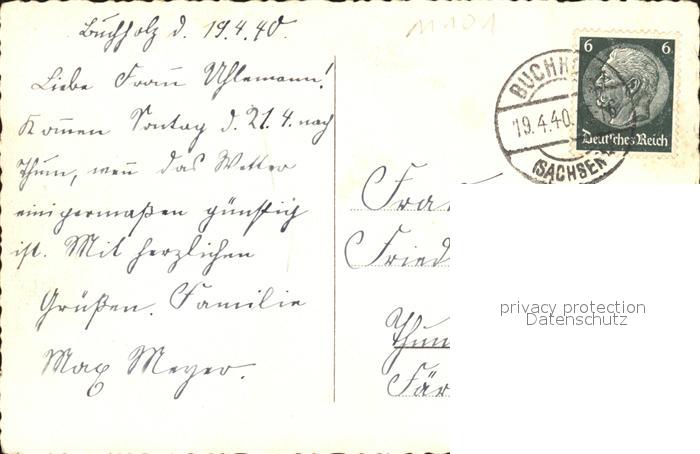 Buchholz d. 19.4.40.
11101
Liebe Frau Uhlemann!
Kom̅en Sontag d. 21.4. nach
Thum, wen̅ das Wetter
einigermaßen günstig
ist. Mit herzlichen
Grüßen. Familie
Max Meyer.
6 6
Deutsches Reich
BUCHH
19.4.40.
(SACHSEN)
Frau
Fried
Thum
Fär
privacy protection
Datenschutz